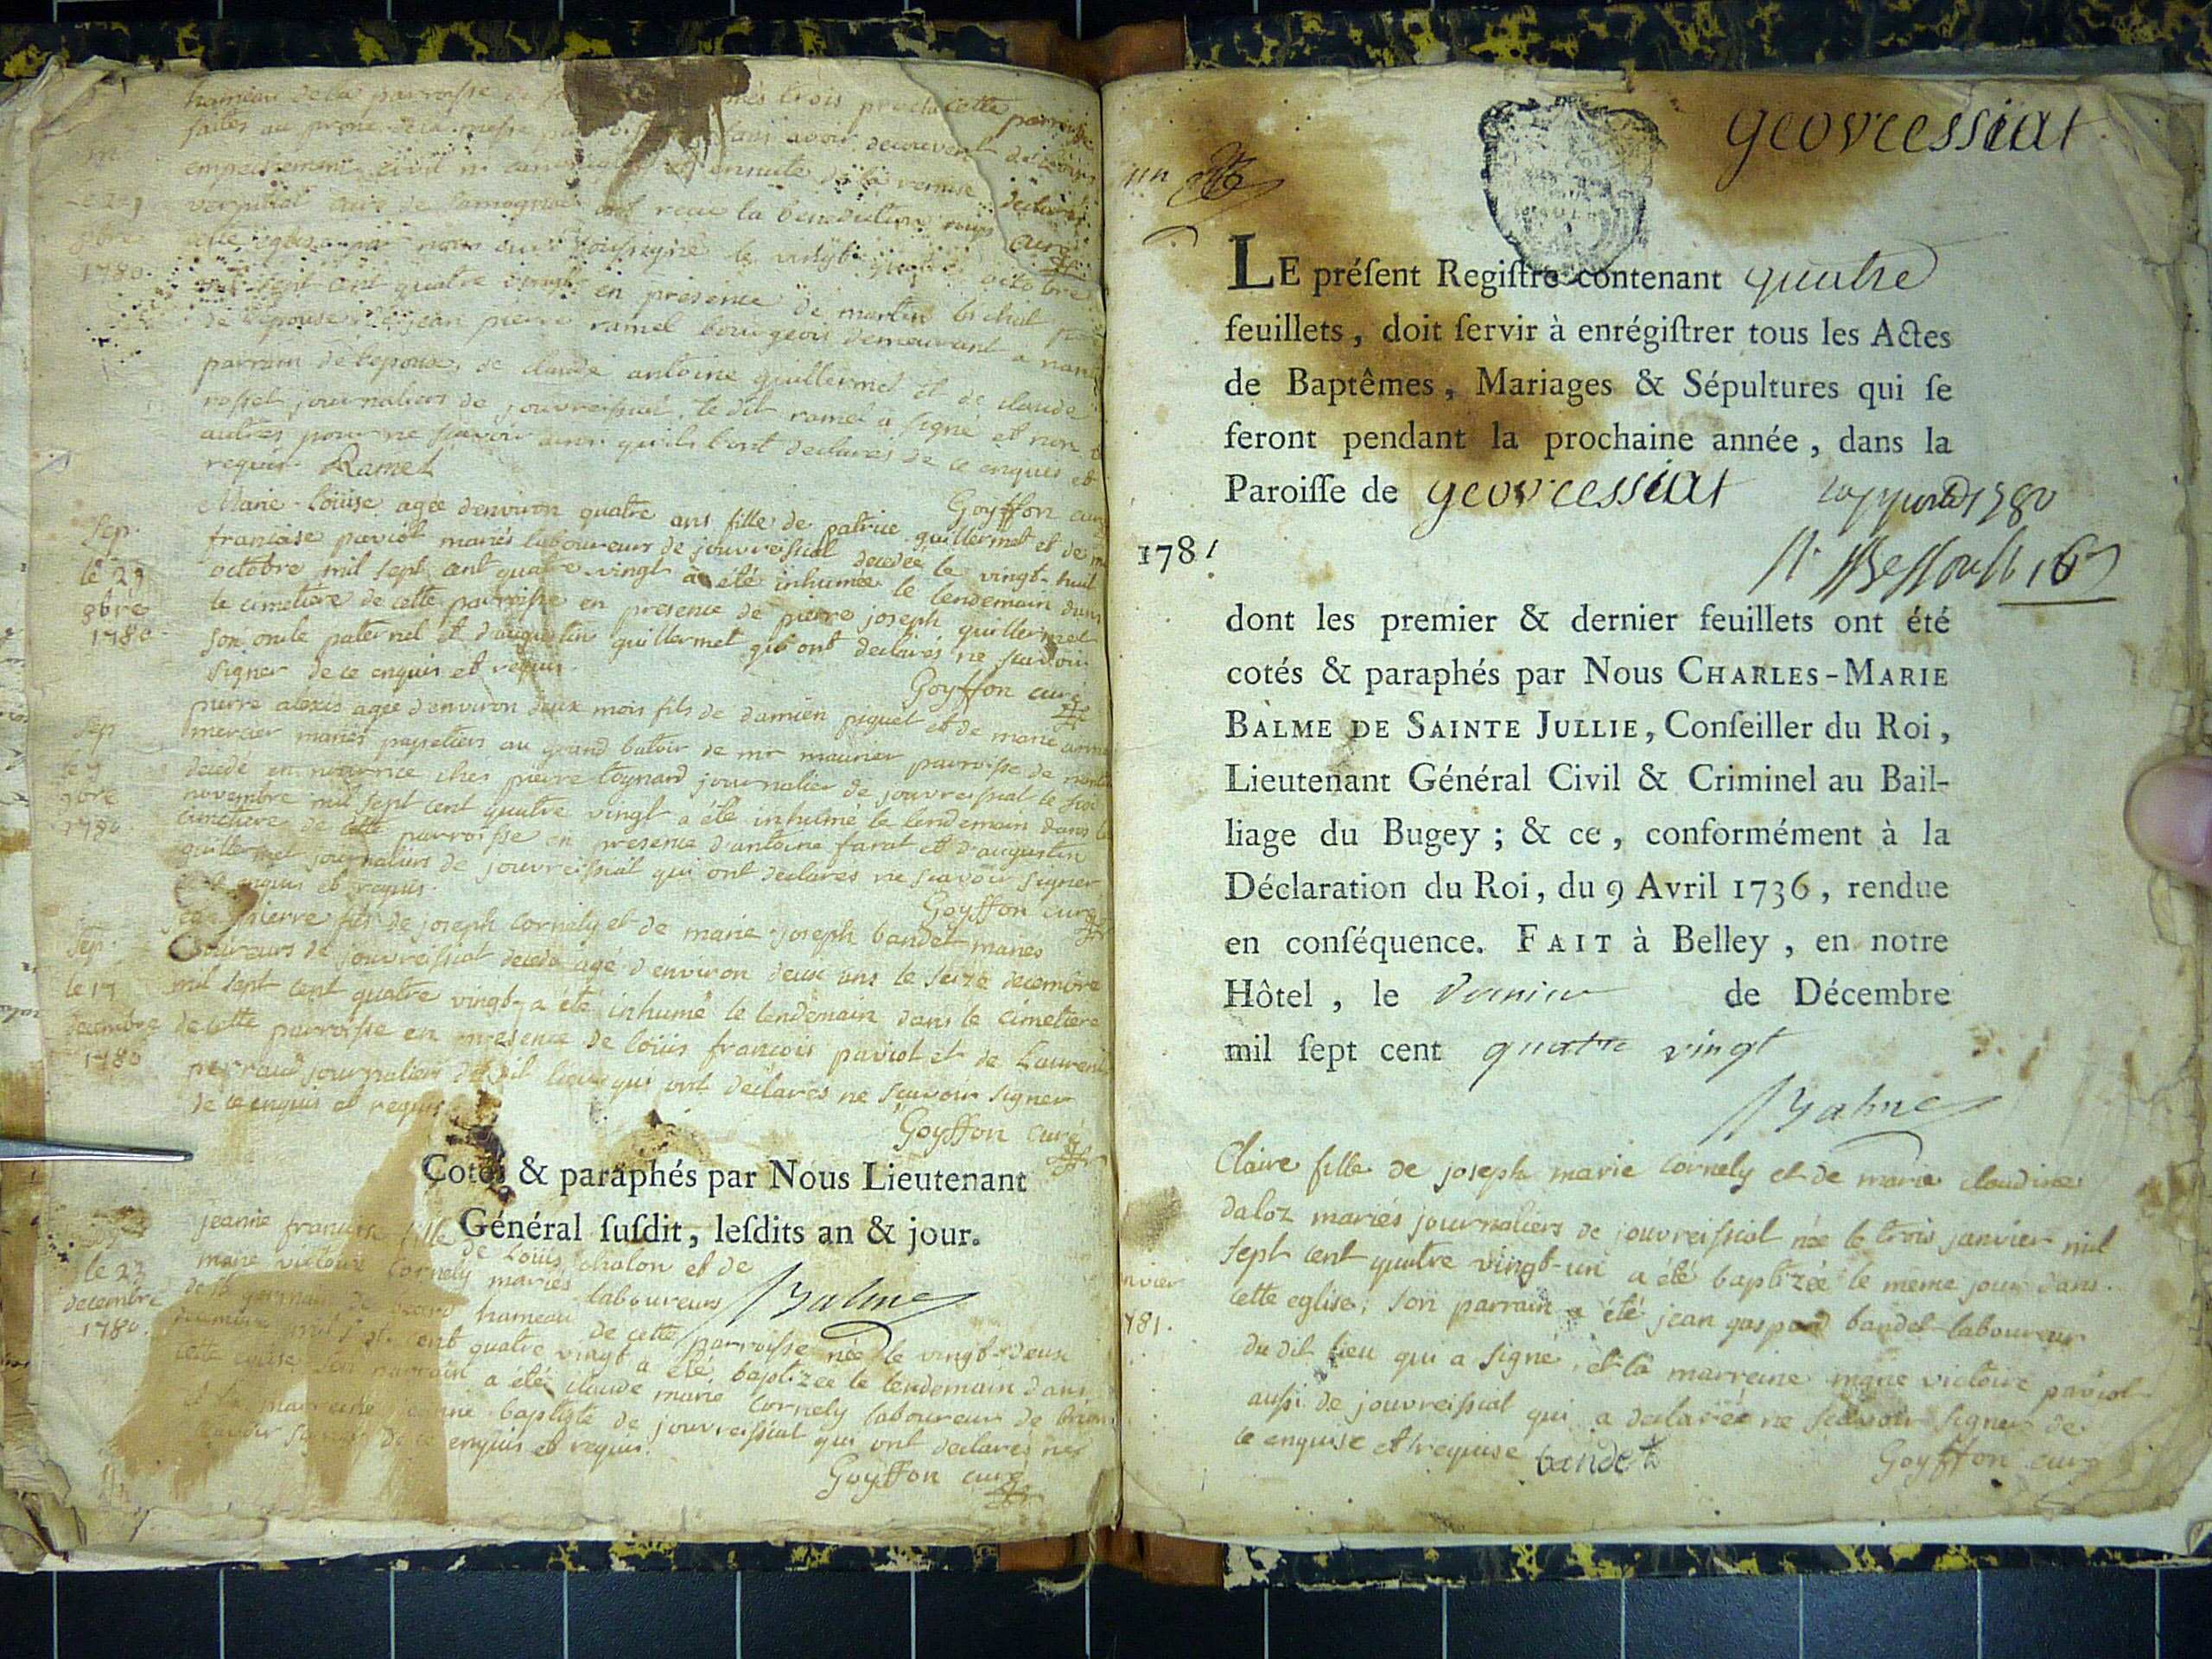 hameau de la parroisse de trois cette parroisse
faites au prone de la messe sans avoir decouvert
empeschement civil ni et ensuite de la remise
ont recu la benediction
cette eglise par nous curé soussigné le vingt quatre octobre
mil sept cent quatre vingt en presence de martin bichat
de l'epouse, de jean pierre ramel bourgeois demeurant a
parrain de l'epouse, de claude antoine guillermet et de claude
rosset journaliers de jouvreissiat, le dit ramel a signé et non
autres pour ne sçavoir ainsi qu'ils l'ont declarés de ce enquis et
requis. Ramel
Goyffon curé
1780.
Sep.
le 29
8bre
1780
Marie-Loüise agée d'environ quatre ans fille de patrice guillermet et de
francoise paviot mariés laboureurs de jouvreissiat decedée le vingt-huit
octobre mil sept cent quatre-vingt a été inhumée le lendemain dans
le cimetiere de cette parroisse en presence de pierre joseph guillermet
son oncle paternel et d'augustin guillermet qui ont declarés ne scavoir
signer de ce enquis et requis.
Goyffon curé
Sep
le 7
9bre
1780.
pierre alexis agée d'environ deux mois fils de damien piquet et de marie anne
mercier mariés papetiers au grand batoir de mr maunier parroisse de
decedé en nourrice chés pierre toynard journalier de jouvreissiat le six
novembre mil sept cent quatre vingt a été inhumé le lendemain dans le
cimetiere de cette parroisse en presence d'antoine farat et d'augustin
guillermet journaliers de jouvreissiat qui ont declares ne scavoir signer
de ce enquis et requis.
Goyffon curé
Sep.
le 17
decembre
1780
jean pierre fils de joseph cornely et de marie joseph bandet mariés
laboureurs de jouvreissiat decedé agé d'environ deux ans le seize decembre
mil sept cent quatre vingt a été inhumé le lendemain dans le cimetiere
de cette parroisse en presence de loüis francois paviot et de Laurent
perraud journaliers du dit lieu qui ont declarés ne scavoir signer
de ce enquis et requis
Goyffon curé
Cotés & paraphés par Nous Lieutenant
Général susdit, lesdits an & jour.
Balme
le 23
decembre
1780.
jeanne francoise fille de Loüis chalon et de
marie victoire cornely mariés laboureurs
de st germain de hameau de cette parroisse née le vingt-deux
decembre mil sept cent quatre vingt a été baptizée le lendemain dans
cette eglise son parrain a été claude marie cornely laboureur de
et la marreine jeanne baptiste de jouvreissiat qui ont declarés ne
scavoir signer de ce enquis et requis.
Goyffon curé
un
geovressiat
LE présent Registre contenant quatre
feuillets, doit servir à enrégistrer tous les Actes
de Baptêmes, Mariages & Sépultures qui se
feront pendant la prochaine année, dans la
Paroisse de geovressiat
1781
dont les premier & dernier feuillets ont été
cotés & paraphés par Nous CHARLES-MARIE
BALME DE SAINTE JULLIE, Conseiller du Roi,
Lieutenant Général Civil & Criminel au Bail-
liage du Bugey ; & ce, conformément à la
Déclaration du Roi, du 9 Avril 1736, rendue
en conséquence. FAIT à Belley, en notre
Hôtel, le dernier de Décembre
mil sept cent quatre vingt
Balme
nvier
781.
Claire fille de joseph marie cornely et de marie claudine
daloz mariés journaliers de jouvreissiat née le trois janvier mil
sept cent quatre vingt-un a été baptizée le meme jour dans
cette eglise; son parrain a été jean gaspard bandet laboureur
du dit lieu qui a signé, et la marreine marie victoire paviot
aussi de jouvreissiat qui a declarée ne scavoir signer de
ce enquise et requise bandet
Goyffon curé